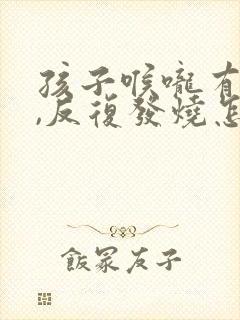 孩子喉嚨有
,反復發燒怎
飯冢友子